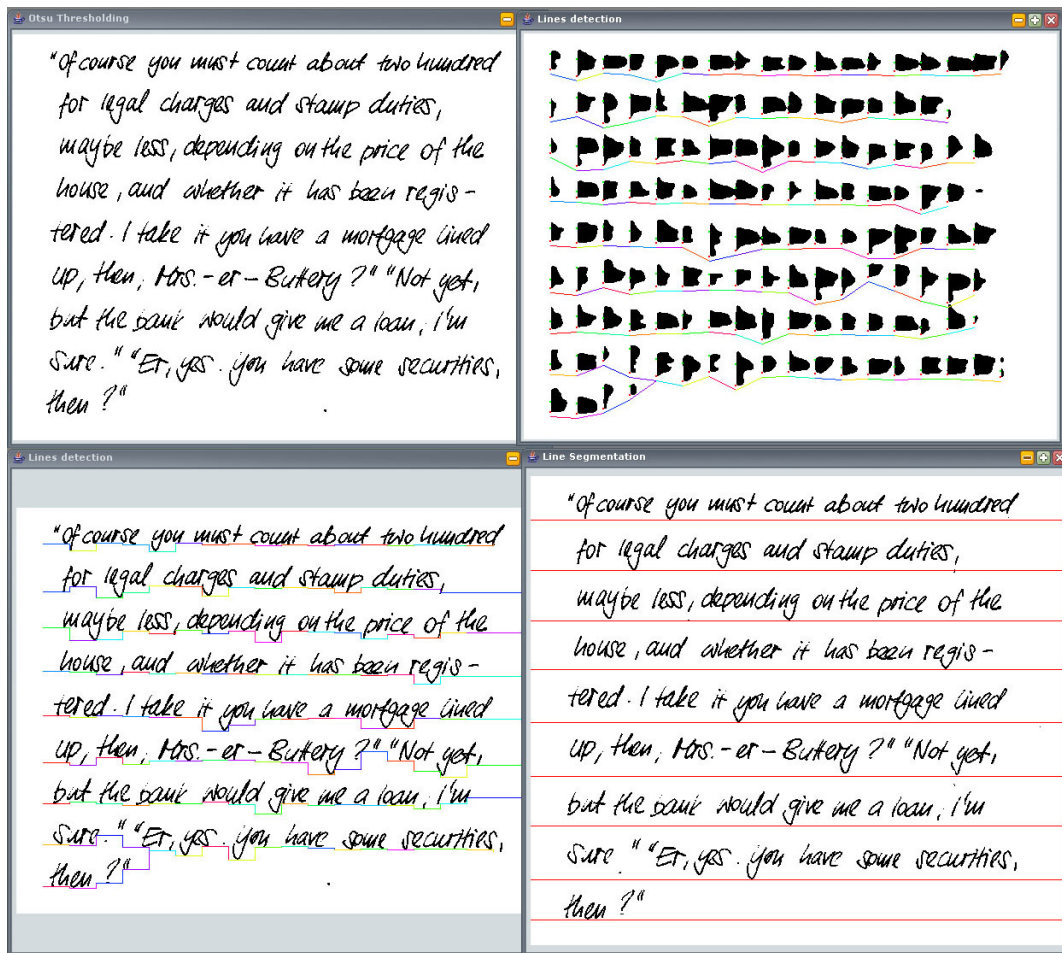 Otsu Thresholding
"Of course you must count about two hundred
for legal charges and stamp duties,
maybe less, depending on the price of the
house, and whether it has been regis -
tered. I take it you have a mortgage lined
up, then, Mrs. - er - Buttery ?" "Not yet,
but the bank would give me a loan, I'm
sure." "Er, yes. you have some securities,
then ?"
Lines detection
Lines detection
"Of course you must count about two hundred
for legal charges and stamp duties,
maybe less, depending on the price of the
house, and whether it has been regis -
tered. I take it you have a mortgage lined
up, then, Mrs. - er - Buttery ?" "Not yet,
but the bank would give me a loan, I'm
sure." "Er, yes. you have some securities,
then ?"
Line Segmentation
"Of course you must count about two hundred
for legal charges and stamp duties,
maybe less, depending on the price of the
house, and whether it has been regis -
tered. I take it you have a mortgage lined
up, then, Mrs. - er - Buttery ?" "Not yet,
but the bank would give me a loan, I'm
sure " "Er, yes. you have some securities,
then ?"